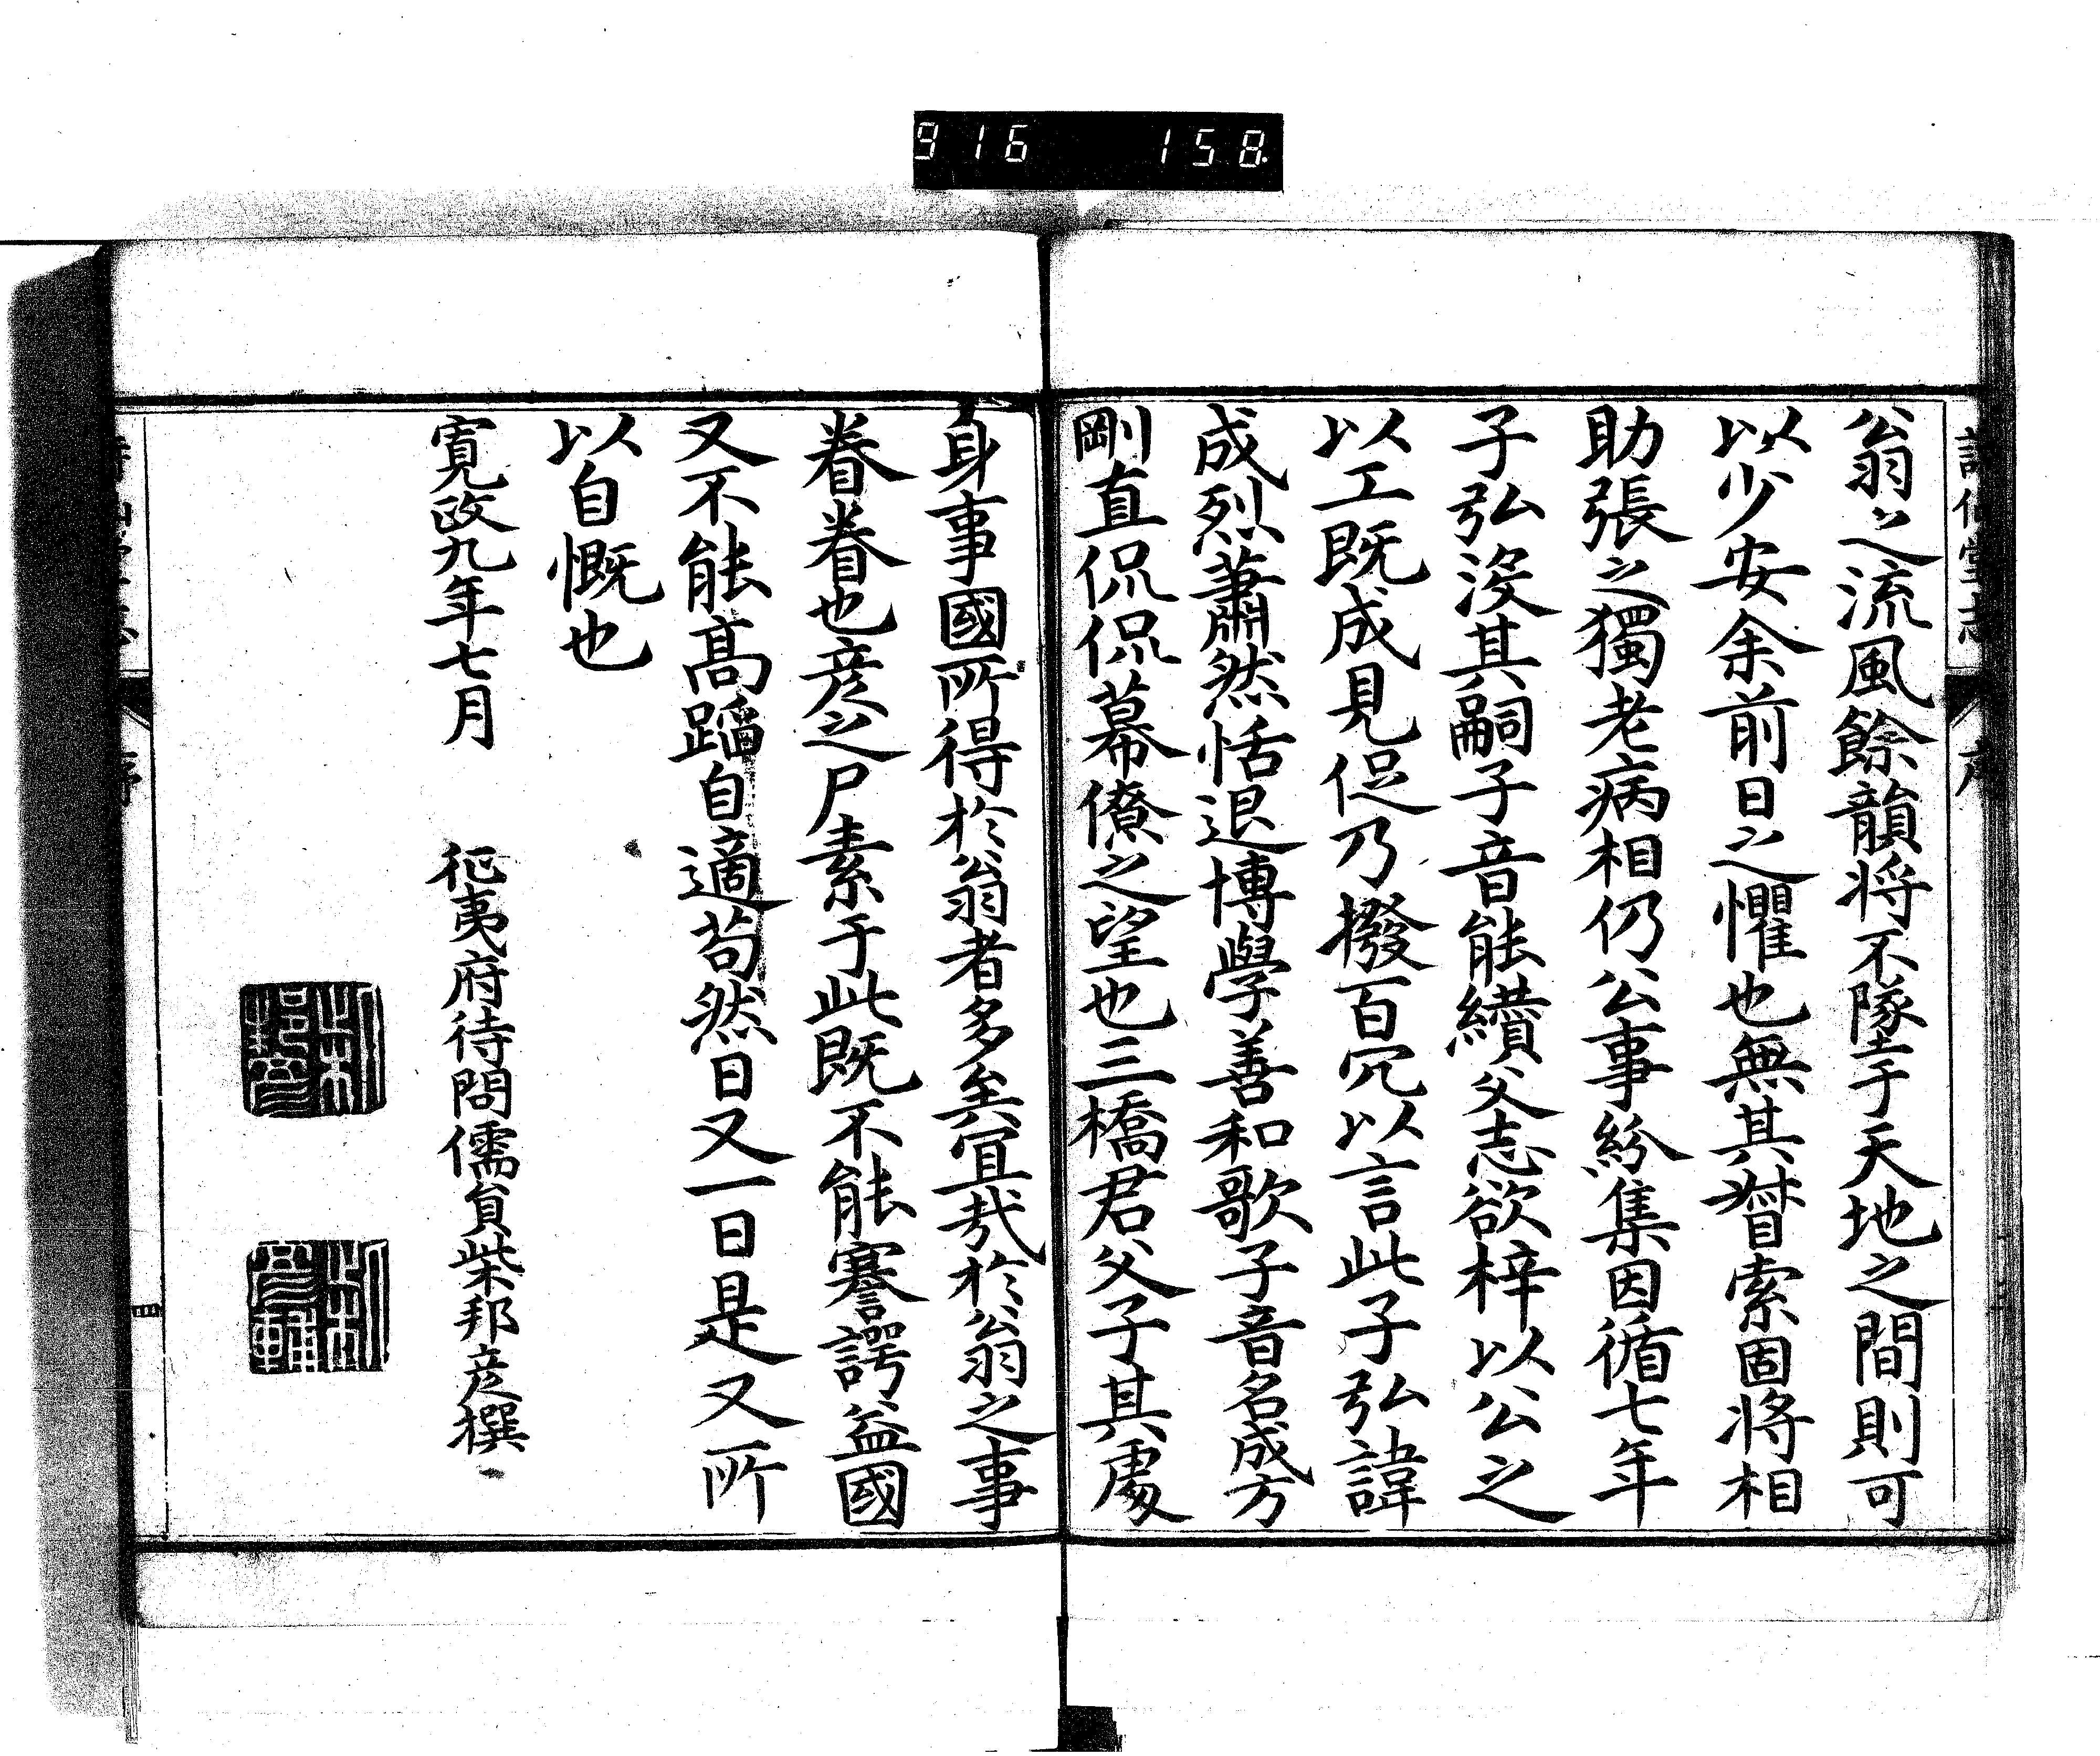 916 158
翁之流風餘韻将不隊于天地之間則可
以少安余前日之懼也無其督索固将相
助張之獨老病相仍公事紛集因循七年
子弘沒其嗣子音能纘父志欲梓以公之
以工既成見促乃撥百冗以言此子弘諱
成烈蕭然恬退博學善和歌子音名成方
剛直侃侃幕僚之望也三橋君父子其處
身事國所得於翁者多矣宜哉於翁之事
眷眷也彦之尸素于此既不能謇諤益國
又不能高蹈自適苟然日又一日是又所
以自慨也
寛政九年七月 征夷府待問儒員柴邦彦撰
四